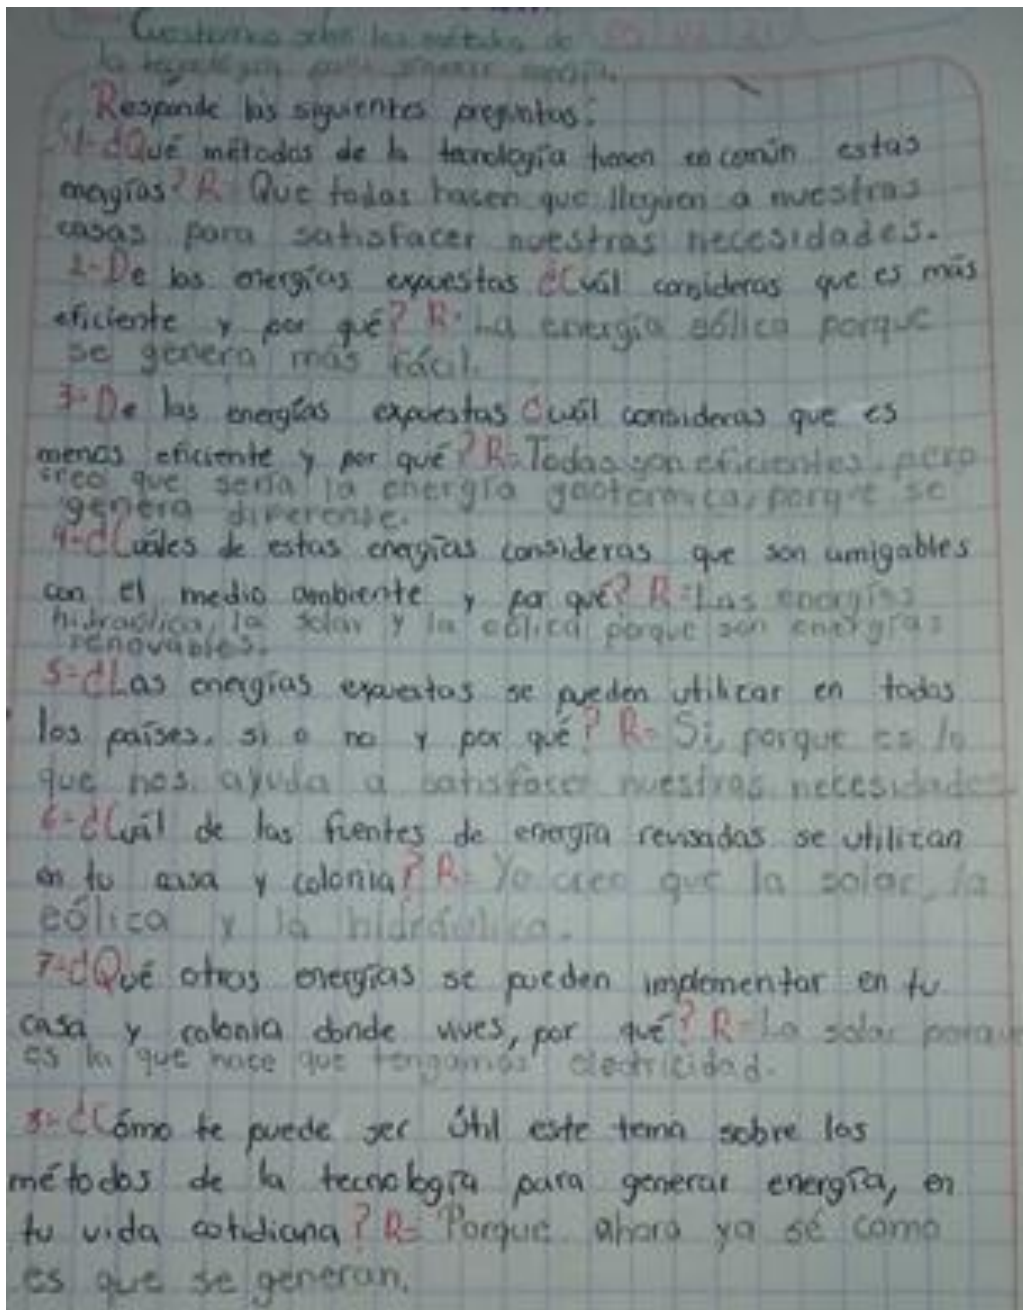 Cuestionario sobre los métodos de
la tecnología para generar energía.
Responde las siguientes preguntas:
1-¿Qué métodos de la tecnología tienen en común estas
energías? R= Que todas hacen que lleguen a nuestras
casas para satisfacer nuestras necesidades.
2-De las energías expuestas ¿Cuál consideras que es más
eficiente y por qué? R= La energía eólica porque
se genera más fácil.
3-De las energías expuestas Cuál consideras que es
menos eficiente y por qué? R= Todas son eficientes, pero
creo que sería la energía geotermica, porque se
genera diferente.
4-¿Cuáles de estas energías consideras que son amigables
con el medio ambiente y por qué? R= Las energías
hidraólica, la solar y la eólica porque son energías
renovables.
5-¿Las energías expuestas se pueden utilizar en todos
los países. si o no y por qué? R= Si, porque es lo
que nos ayuda a satisfacer nuestras necesidades
6-¿Cuál de las fuentes de energía revisadas se utilizan
en tu casa y colonia? R= Yo creo que la solar, la
eólica y la hidráulica.
7-¿Qué otras energías se pueden implementar en tu
casa y colonia donde vives, por qué? R= La solar porque
es la que hace que tengamos electricidad.
8-¿Cómo te puede ser útil este tema sobre los
métodos de la tecnología para generar energía, en
tu vida cotidiana? R= Porque ahora ya sé como
es que se generan.